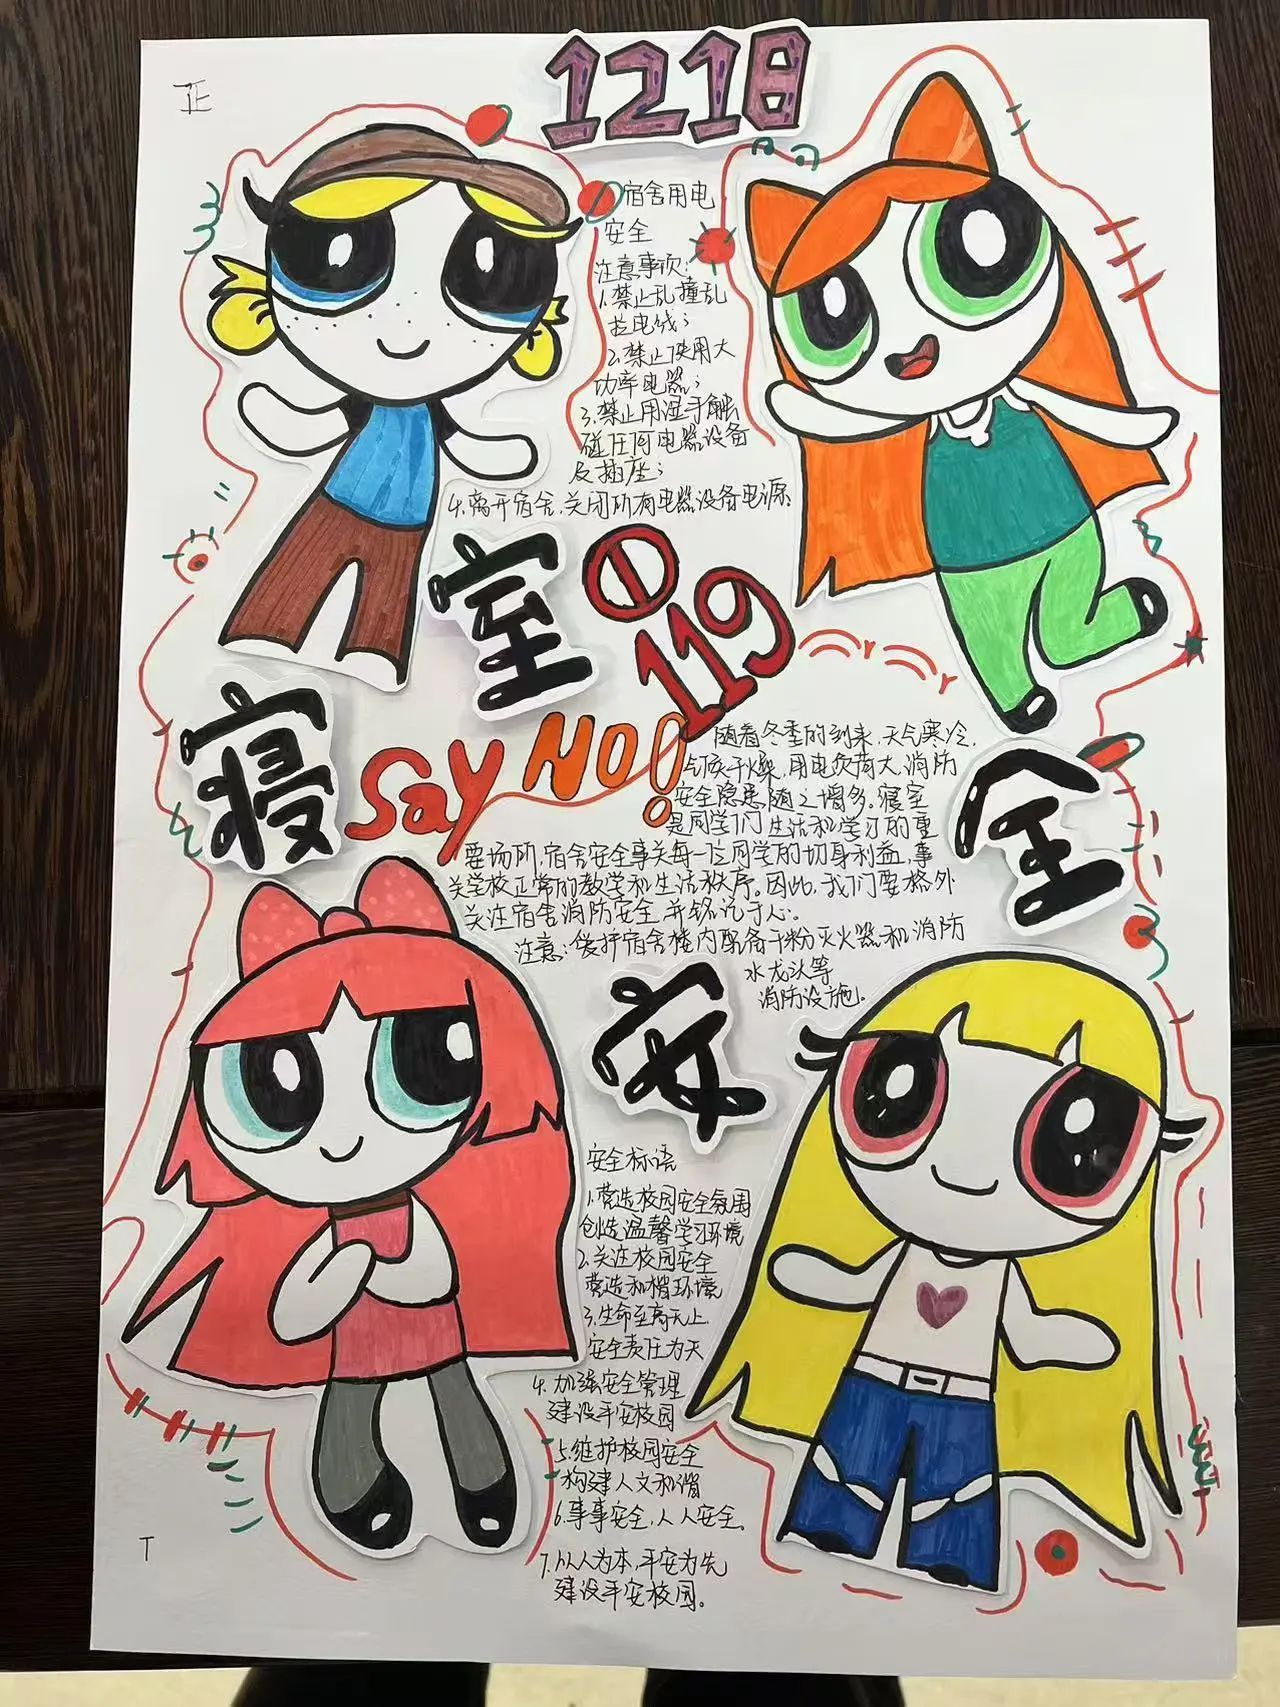 正
1218
宿舍用电
安全
注意事项:
1.禁止乱撞乱
拉电线;
2.禁止使用大
功率电器;
3.禁止用湿手触
碰任何电器设备
及插座;
4.离开宿舍,关闭所有电器设备电源.
寝室
119
say NO!
随着冬季的到来,天气寒冷,
气候干燥,用电负荷大,消防
安全隐患随之增多。寝室
是同学们生活和学习的重
要场所,宿舍安全事关每一位同学的切身利益,事
关学校正常的教学和生活秩序。因此,我们要格外
关注宿舍消防安全,并铭记于心。
注意:宿舍楼内配备干粉灭火器和消防
水龙头等
消防设施.
安全
安全标语
1.营造校园安全氛围
创造温馨学习环境
2.关注校园安全
营造和楷环境
3.生命至高无上
安全责任为天
4.加强安全管理
建设平安校园
5.维护校园安全
构建人文和谐
6.事事安全,人人安全。
7.以人为本,平安为先
建设平安校园。
T